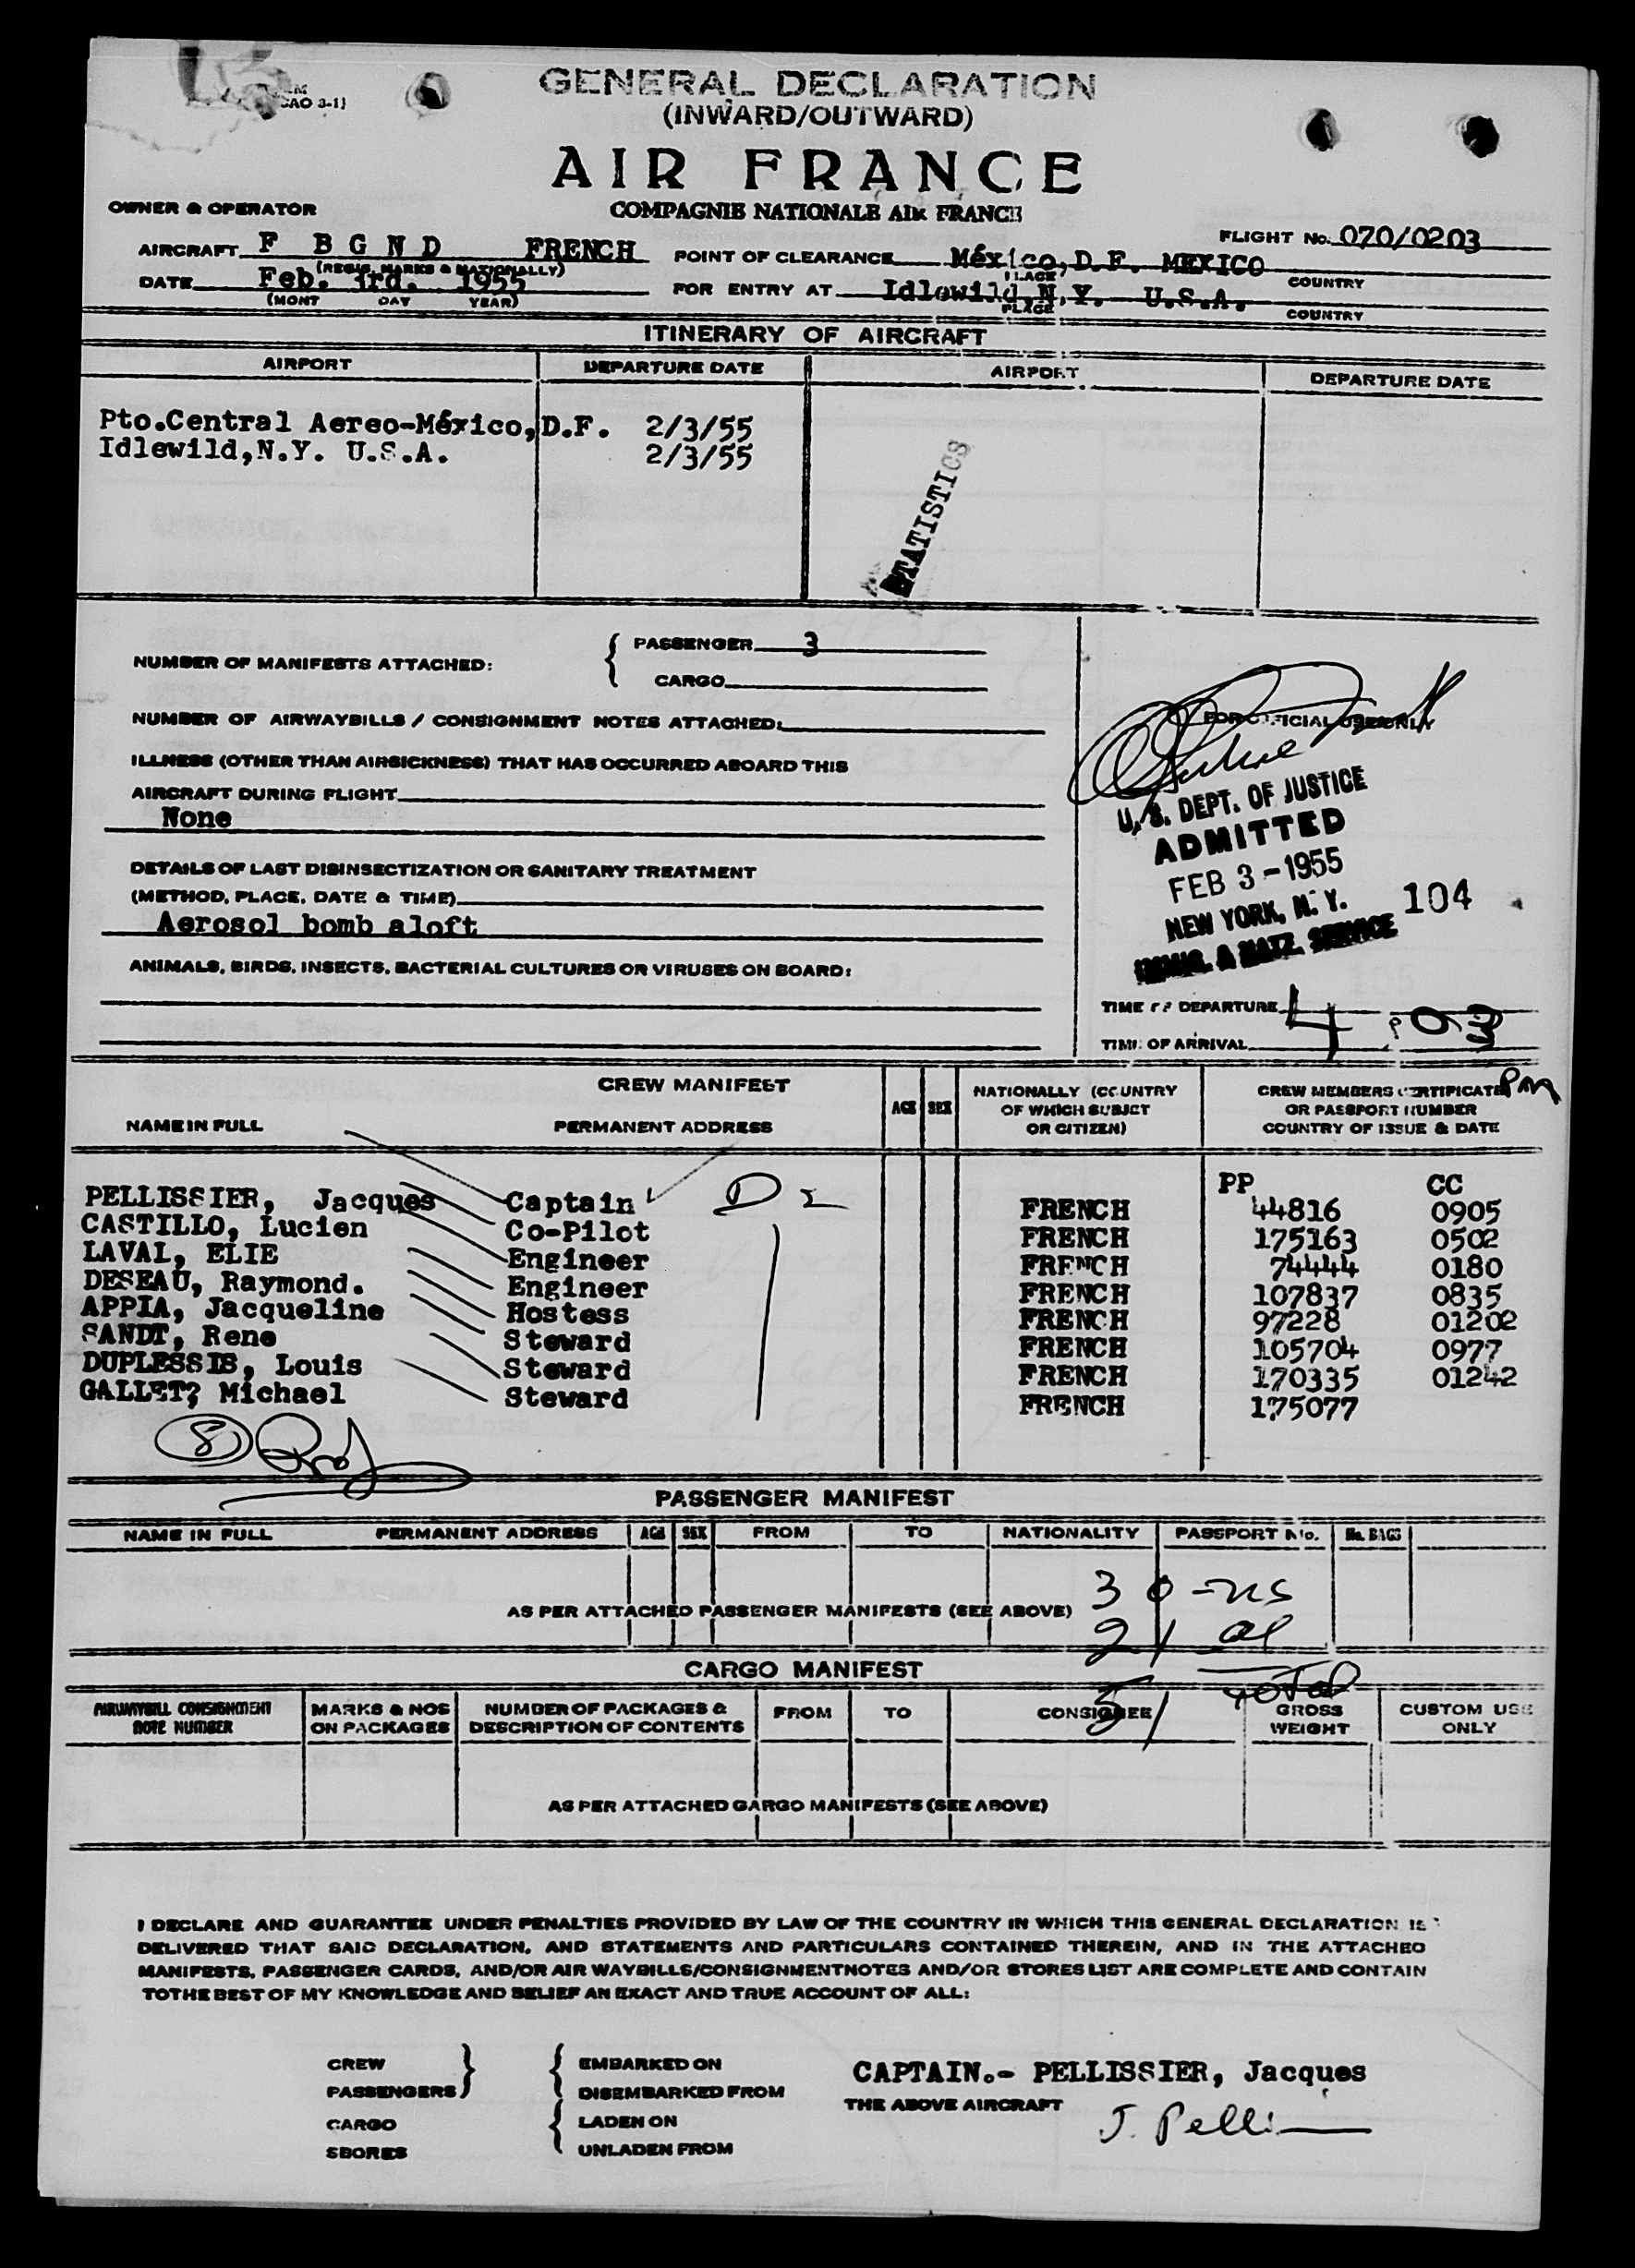 CAO 3-1)
GENERAL DECLARATION
(INWARD/OUTWARD)
AIR FRANCE
OWNER & OPERATOR
COMPAGNIE NATIONALE AIR FRANCE
AIRCRAFT F BGND FRENCH
POINT OF CLEARANCE México, D.F. MEXICO
FLIGHT No. 070/0203
(REGIS. MARKS & NATIONALLY)
PLACE
COUNTRY
DATE Feb. 3rd. 1955
FOR ENTRY AT Idlewild, N.Y. U.S.A.
(MONT DAY YEAR)
PLACE
COUNTRY
ITINERARY OF AIRCRAFT
AIRPORT DEPARTURE DATE AIRPORT DEPARTURE DATE
Pto.Central Aereo-México,D.F. 2/3/55
Idlewild,N.Y. U.S.A. 2/3/55
STATISTICS
NUMBER OF MANIFESTS ATTACHED:
PASSENGER 3
CARGO
NUMBER OF AIRWAYBILLS / CONSIGNMENT NOTES ATTACHED:
FOR OFFICIAL USE ONLY
ILLNESS (OTHER THAN AIRSICKNESS) THAT HAS OCCURRED ABOARD THIS
AIRCRAFT DURING FLIGHT
None
DETAILS OF LAST DISINSECTIZATION OR SANITARY TREATMENT
(METHOD, PLACE, DATE & TIME)
Aerosol bomb aloft
ANIMALS, BIRDS, INSECTS, BACTERIAL CULTURES OR VIRUSES ON BOARD:
U.S. DEPT. OF JUSTICE
ADMITTED
FEB 3 - 1955
NEW YORK, N. Y. 104
IMMIG. & NATZ. SERVICE
TIME OF DEPARTURE 4:03
TIME OF ARRIVAL
PM
CREW MANIFEST
NAME IN FULL PERMANENT ADDRESS AGE SEX
NATIONALLY (COUNTRY
OF WHICH SUBJCT
OR CITIZEN)
CREW MEMBERS CERTIFICATE
OR PASSPORT NUMBER
COUNTRY OF ISSUE & DATE
PP CC
PELLISSIER, Jacques Captain FRENCH 44816 0905
CASTILLO, Lucien Co-Pilot FRENCH 175163 0502
LAVAL, ELIE Engineer FRENCH 74444 0180
DESEAU, Raymond. Engineer FRENCH 107837 0835
APPIA, Jacqueline Hostess FRENCH 97228 01202
SANDT, Rene Steward FRENCH 105704 0977
DUPLESSIS, Louis Steward FRENCH 170335 01242
GALLET? Michael Steward FRENCH 175077
8
PASSENGER MANIFEST
NAME IN FULL PERMANENT ADDRESS AGE SEX FROM TO NATIONALITY PASSPORT No. No. BAGS
30 - us
AS PER ATTACHED PASSENGER MANIFESTS (SEE ABOVE)
21 al
CARGO MANIFEST
51 Total
AIRWAYBILL CONSIGNMENT
NOTE NUMBER
MARKS & NOS
ON PACKAGES
NUMBER OF PACKAGES &
DESCRIPTION OF CONTENTS
FROM TO CONSIGNEE
GROSS
WEIGHT
CUSTOM USE
ONLY
AS PER ATTACHED CARGO MANIFESTS (SEE ABOVE)
I DECLARE AND GUARANTEE UNDER PENALTIES PROVIDED BY LAW OF THE COUNTRY IN WHICH THIS GENERAL DECLARATION IS
DELIVERED THAT SAID DECLARATION, AND STATEMENTS AND PARTICULARS CONTAINED THEREIN, AND IN THE ATTACHED
MANIFESTS, PASSENGER CARDS, AND/OR AIR WAYBILLS/CONSIGNMENTNOTES AND/OR STORES LIST ARE COMPLETE AND CONTAIN
TO THE BEST OF MY KNOWLEDGE AND BELIEF AN EXACT AND TRUE ACCOUNT OF ALL:
CREW
PASSENGERS
CARGO
SBORES
EMBARKED ON
DISEMBARKED FROM
LADEN ON
UNLADEN FROM
CAPTAIN.- PELLISSIER, Jacques
THE ABOVE AIRCRAFT
J. Pelli